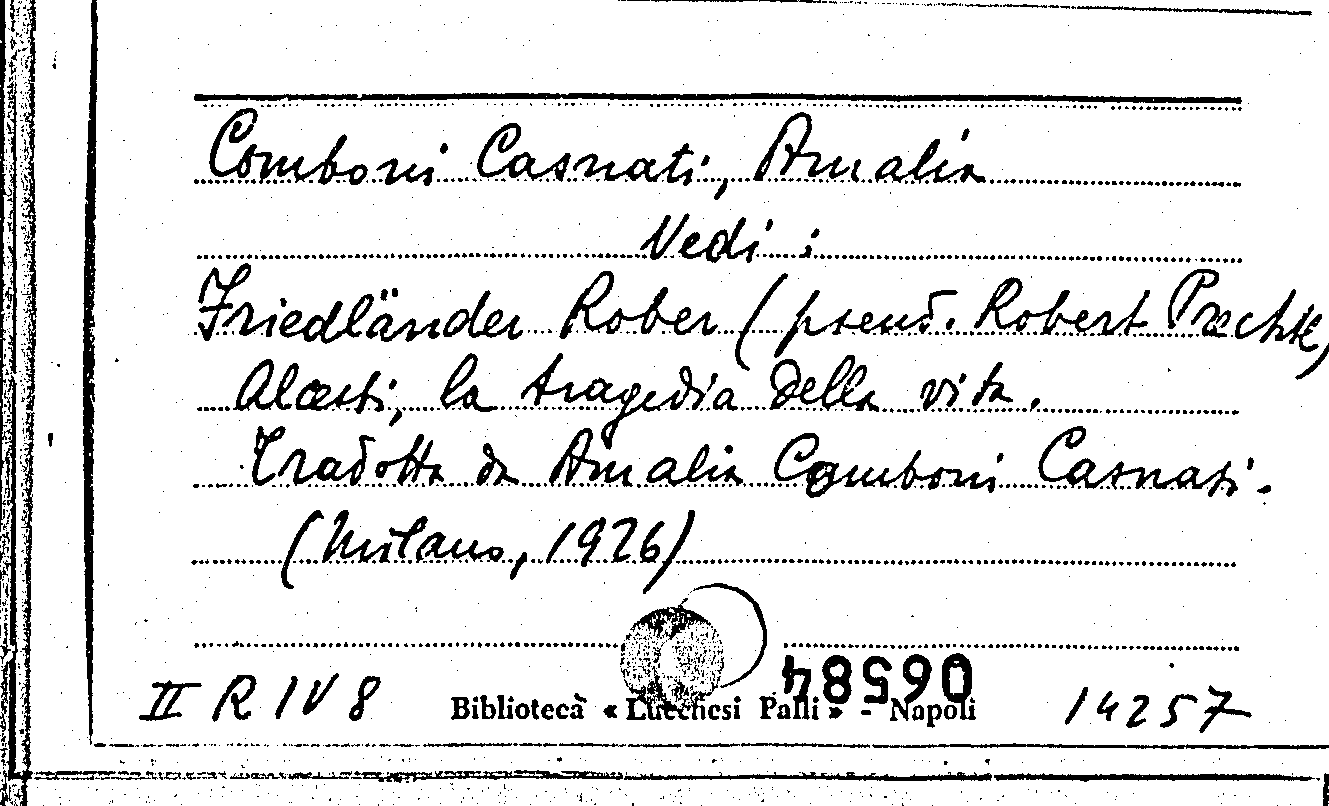 Comboni Casnati, Amalia
Vedi:
Friedländer Rober (pseud. Robert Prechtl)
Alcesti, la tragedia della vita.
Tradotta da Amalia Comboni Casnati.
(Milano, 1926)
06584
II R IV 8 Biblioteca « Lucchesi Palli » - Napoli 14257